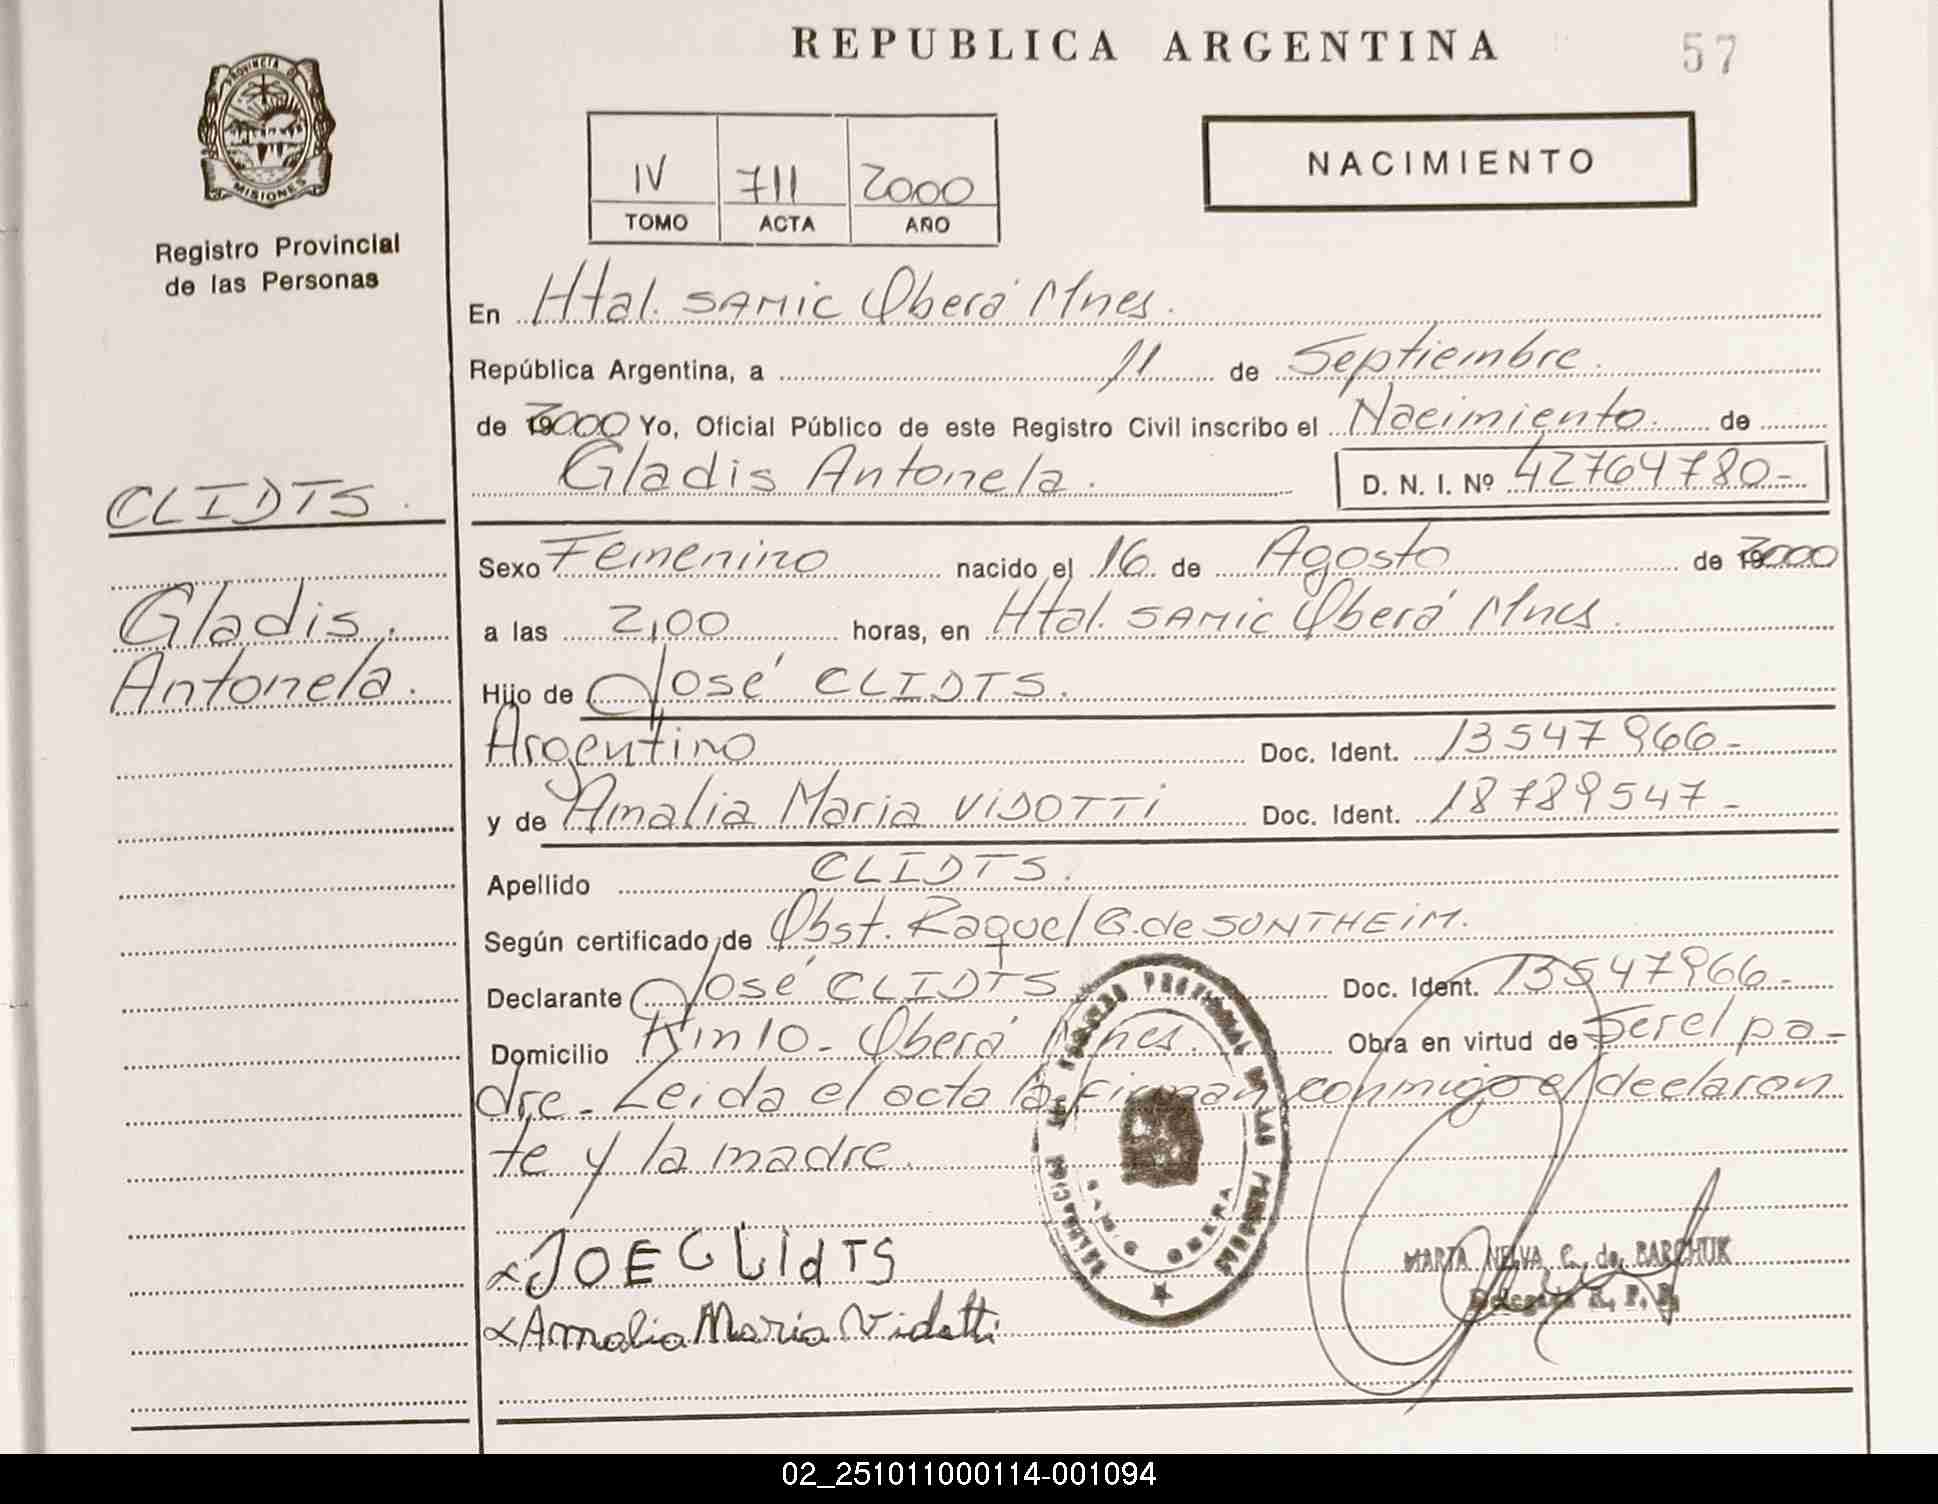 REPUBLICA ARGENTINA
57
PROVINCIA DE
MISIONES
Registro Provincial
de las Personas
IV 711 2000
TOMO ACTA AÑO
NACIMIENTO
En Htal. SAMIC Oberá Mnes.
República Argentina, a 11 de Septiembre.
de 2000 Yo, Oficial Público de este Registro Civil inscribo el Nacimiento. de
Gladis Antonela. D. N. I. Nº 42764780-
CLIDTS.
Gladis.
Antonela.
Sexo Femenino nacido el 16 de Agosto de 2000
a las 2,00 horas, en Htal. SAMIC Oberá Mnes.
Hijo de José CLIDTS.
Argentino Doc. Ident. 13547966-
y de Amalia Maria VIDOTTI Doc. Ident. 18789547-
Apellido CLIDTS.
Según certificado de Obst. Raquel G. de SONTHEIM.
Declarante José CLIDTS Doc. Ident. 13547966-
Domicilio Km 10 - Oberá Mnes. Obra en virtud de Ser el pa-
dre - Leida el acta la firman conmigo el declaran
te y la madre.
JOE CLIdTS
Amalia Maria Vidotti
MARTA NELVA C. de BARCHUK
Delegada R. P. P.
02_251011000114-001094